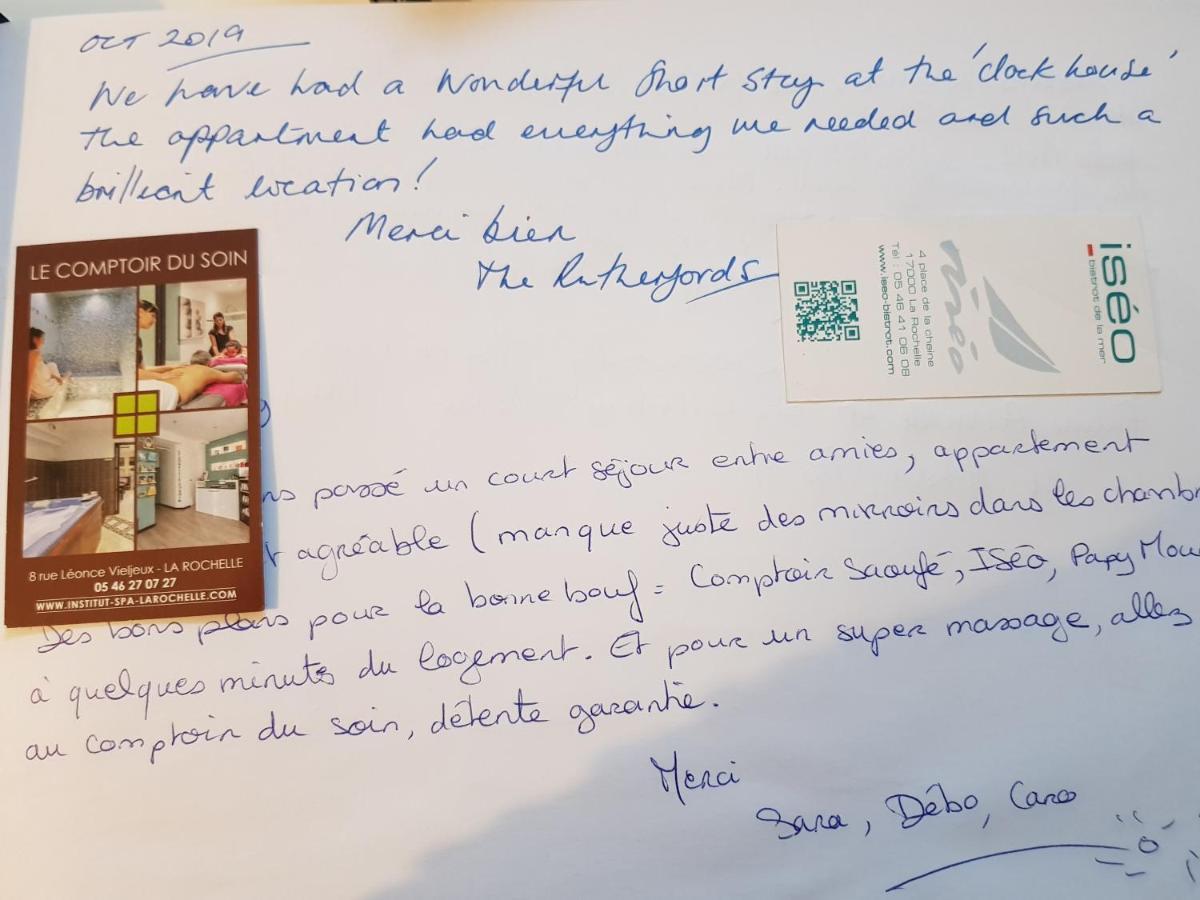 OCT 2019
We have had a Wonderful short stay at the 'clock house'
The appartment had everything we needed and such a
brilliant location!
Merci bien
The Rutherfords
LE COMPTOIR DU SOIN
8 rue Léonce Vieljeux - LA ROCHELLE
05 46 27 07 27
WWW.INSTITUT-SPA-LAROCHELLE.COM
iséo
bistrot de la mer
iséo
4 place de la chaine
17000 La Rochelle
Tél : 05 46 41 06 08
www.iseo-bistrot.com
ns passé un court séjour entre amies, appartement
agréable (manque juste des mirroirs dans les chambr
Des bons plans pour la bonne bouf = Comptoir Saoufé, ISéo, Papy Mou
à quelques minutes du logement. Et pour un super massage, allez
au comptoir du soin, détente garantie.
Merci
Sara, Débo, Caro